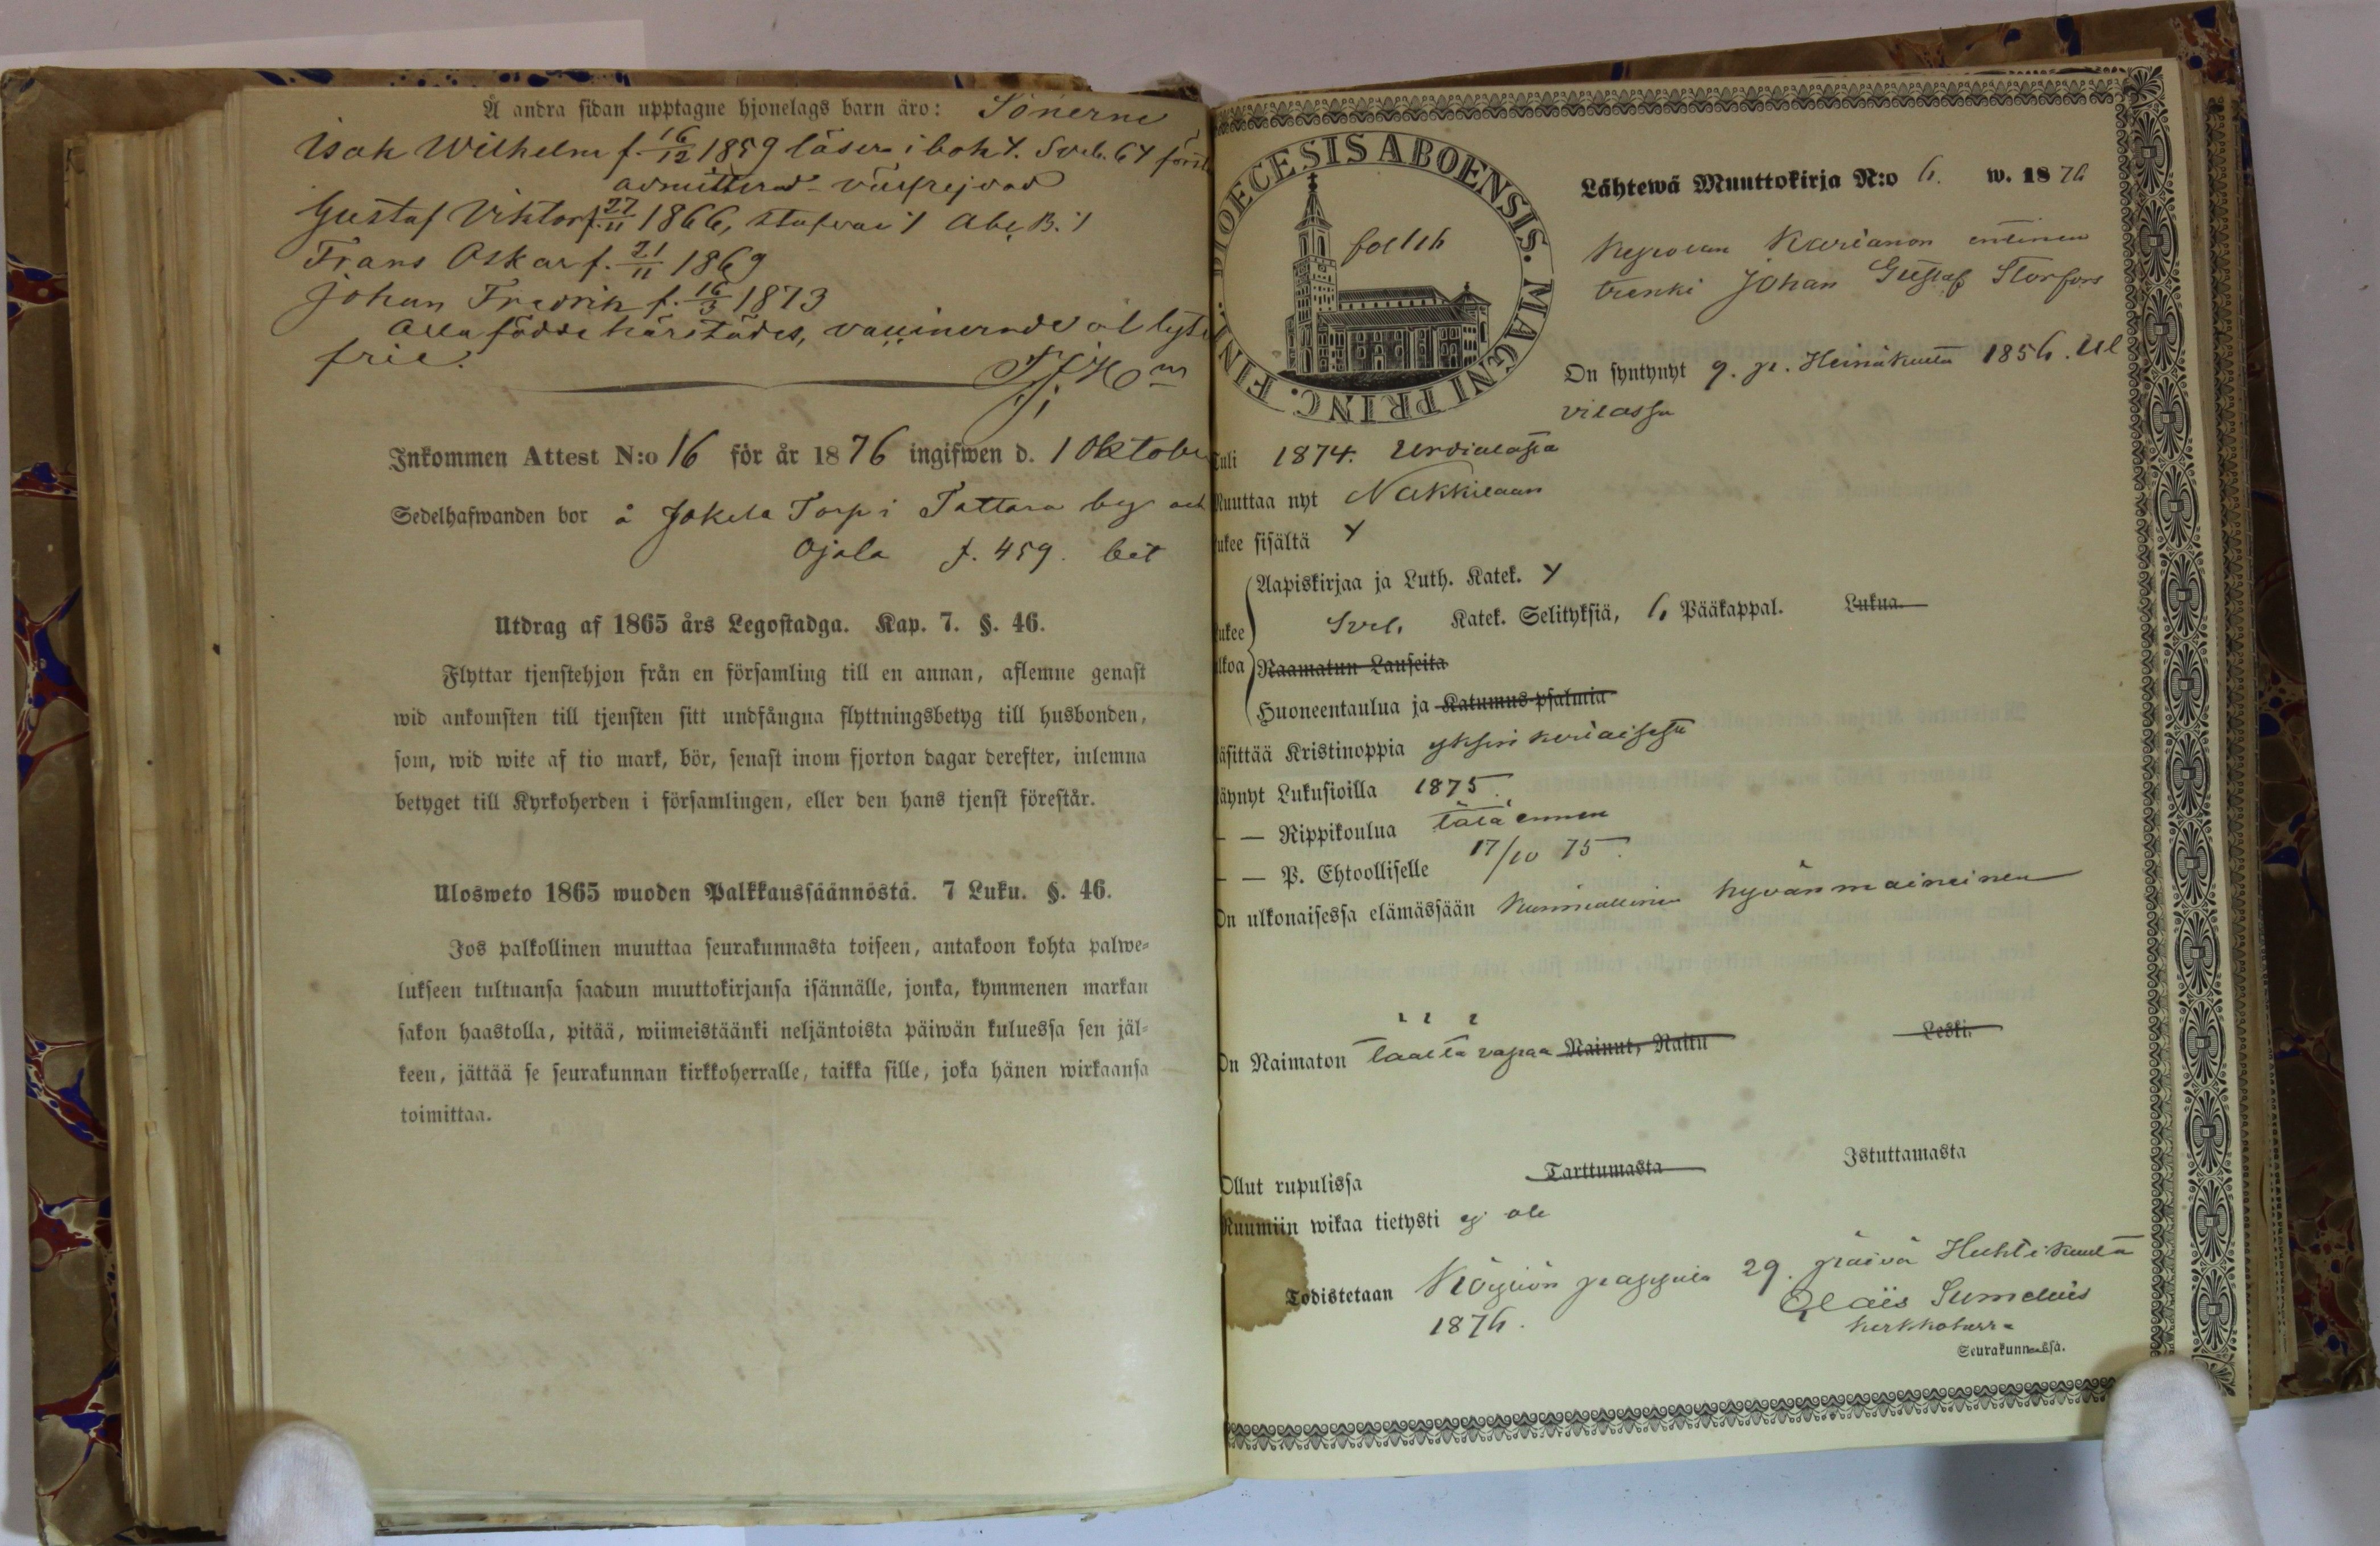 Å andra sidan upptagne hjonelags barn äro: Sönerne
Isak Wilhelm f. 16/12 1859 läser i bok Y. Sveb. 6Y
admitterad - väl frejdad
Gustaf Viktor f. 27/11 1866, stafvar Y Abc B. Y
Frans Oskar f. 21/11 1869
Johan Fredrik f. 16/3 1873
Alla födde härstädes, vaccinerade o lytes
frie.
Inkommen Attest N:o 16 för år 1876 ingifwen d. 1 Oktober
Sedelhafwanden bor å Jokela Torp i Tattara by och
Ojala f. 459.
Utdrag af 1865 års Legostadga. Kap. 7. §. 46.
Flyttar tjenstehjon från en församling till en annan, aflemne genast
wid ankomsten till tjensten sitt undfångna flyttningsbetyg till husbonden,
som, wid wite af tio mark, bör, senast inom fjorton dagar derefter, inlemna
betyget till Kyrkoherden i församlingen, eller den hans tjenst förestår.
Ulosweto 1865 wuoden Palkkaussäännöstä. 7 Luku. §. 46.
Jos palkollinen muuttaa seurakunnasta toiseen, antakoon kohta palwe-
lukseen tultuansa saadun muuttokirjansa isännälle, jonka, kymmenen markan
sakon haastolla, pitää, wiimeistäänki neljäntoista päiwän kuluessa sen jäl-
keen, jättää se seurakunnan kirkkoherralle, taikka sille, joka hänen wirkaansa
toimittaa.
DIOECESIS ABOENSIS. MAGNI PRINC. FINL.
Lähtewä Muuttokirja N:o 6. w. 1876
Kepolan Karianon entinen
trenki Johan Gustaf Storfors
On syntynyt 9. p. Heinäkuuta 1856. Ul
vilassa
Tuli 1874. Urdialasta
Muuttaa nyt Nakkilaan
Lukee sisältä Y
Aapiskirjaa ja Luth. Katek. Y
Lukee Sveb. Katek. Selityksiä, 6 Pääkappal. Lukua.
ulkoa Raamatun Lauseita
Huoneentaulua ja Katumus-psalmia
Käsittää Kristinoppia yksinkertaisesti
Käynyt Lukusioilla 1875.
— — Rippikoulua tätä ennen
— — P. Ehtoolliselle 17/10 75.
On ulkonaisessa elämässään kunniallinen hyvänmaineinen
On Naimaton täältä vapaa Nainut, Naitu Leski.
Ollut rupulissa Tarttumasta Istuttamasta
Ruumiin wikaa tietysti ej ole
Todistetaan Köyliön pappila 29. päivä Huhtikuuta
1876. Claës Sumelius
kirkkoherra
Seurakunnassa.